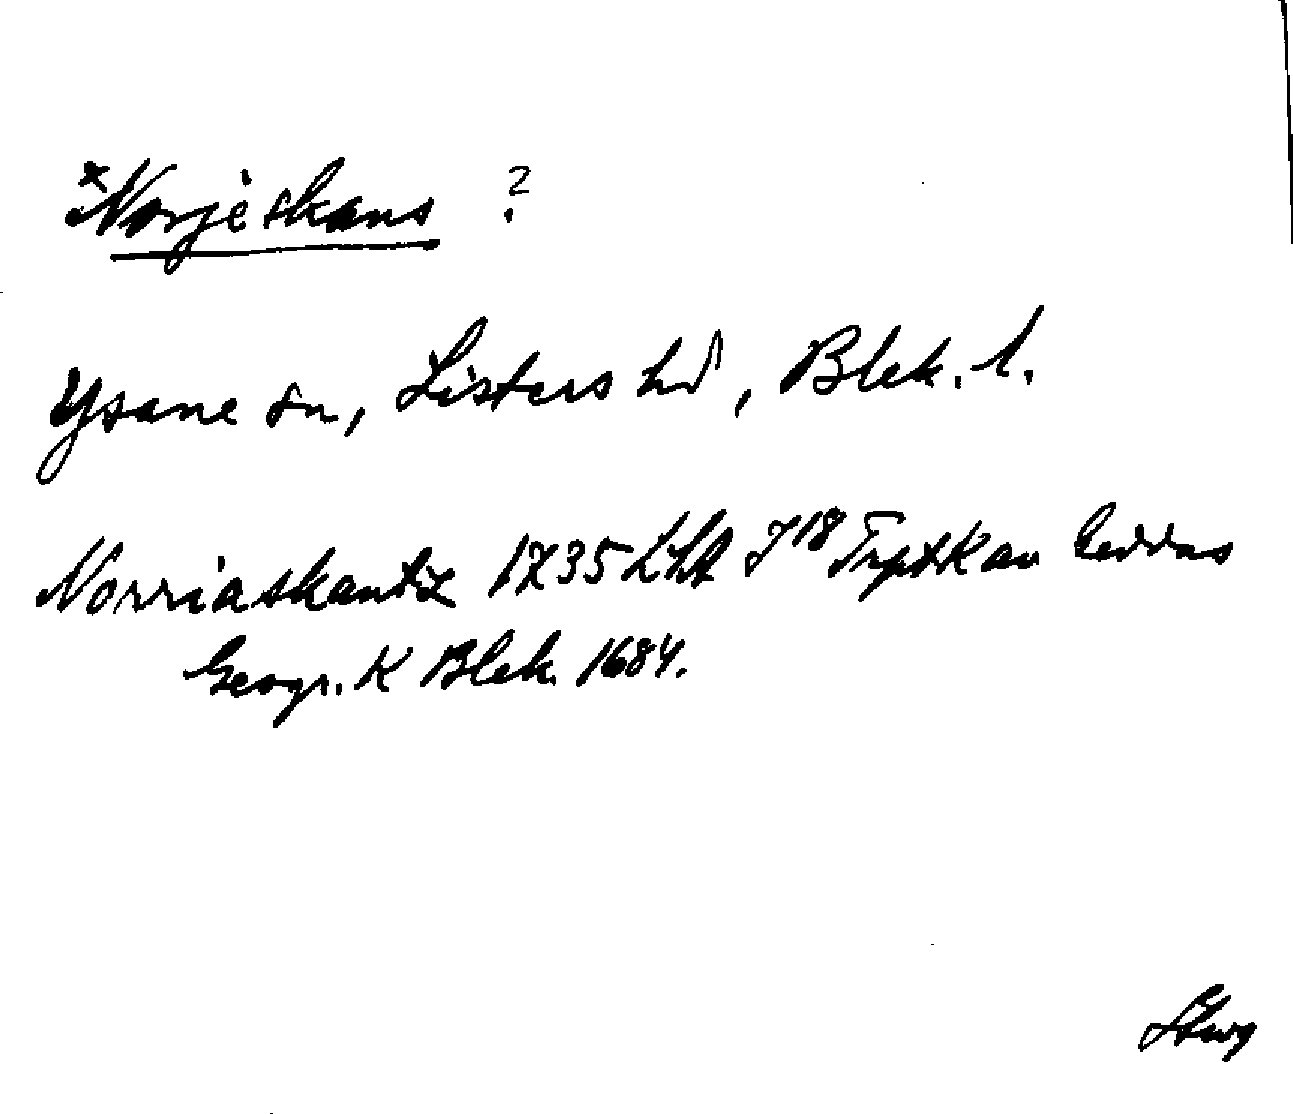 *Norjeskans ?
Ysane sn, Listers hd, Blek. l.
Norriaskantz 1735 LHA J 18 av Geddas
Geogr. K Blek. 1684.